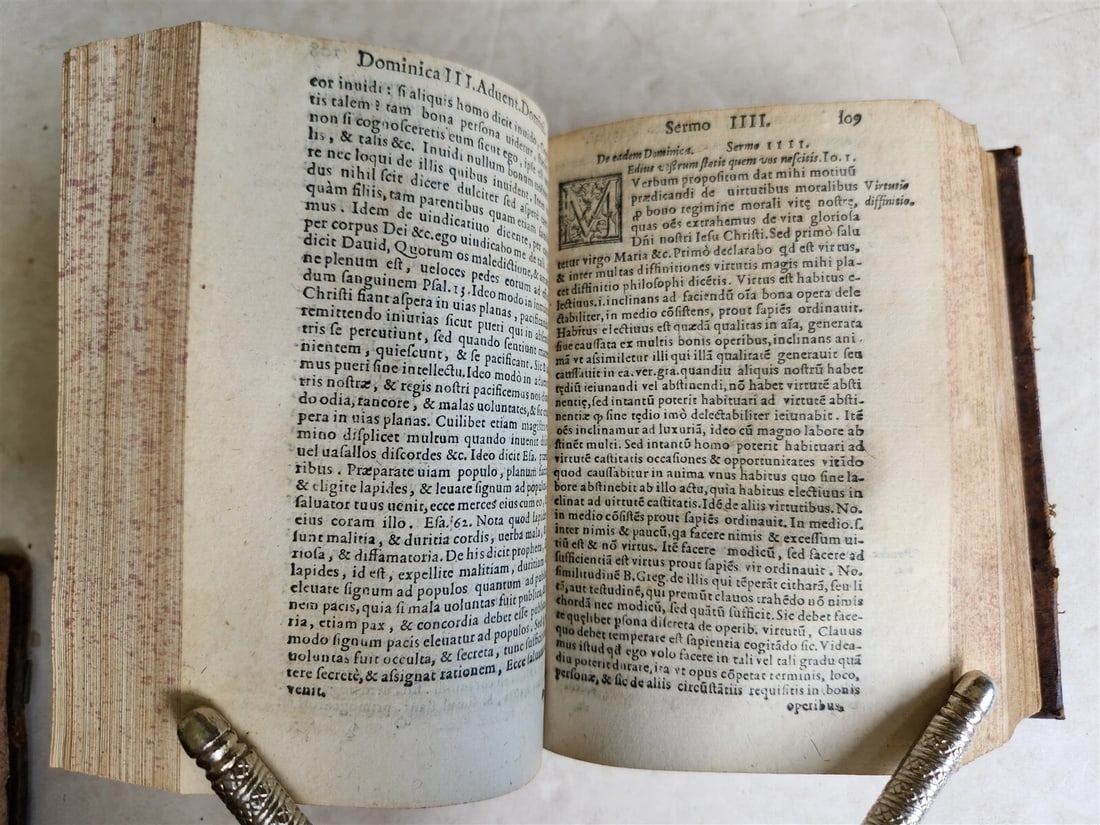 Dominica III. Aduent. Domini
eor inuidi: si aliquis homo dicit inuido,
tis talem? tam bona persona uidetur,
non si cognosceretis eum sicut ego, ipse est
lis, & talis &c. Inuidi nullum bonum
re nec loqui de illis quibus inuident. Item
dus nihil scit dicere dulciter sed asperè tam
quàm filiis, tam parentibus quam etiam
mus. Idem de uindicatiuo dicente, per
per corpus Dei &c. ego uindicabo me de tali,
dicit Dauid, Quorum os maledictione, &
ne plenum est, ueloces pedes eorum ad
dum sanguinem Psal. 13. Ideo modo in
Christi fiant aspera in uias planas, pacificando
remittendo iniurias sicut pueri qui in absentia
tris se percutiunt, sed quando sentiunt
nientem, quiescunt, & se pacificant. Sic
mus pueri sine intellectu. Ideo modò in aduentu
tris nostræ, & regis nostri pacificemus nos
do odia, rancore, & malas uoluntates, & sic
pera in uias planas. Cuilibet etiam magistro
mino displicet multum quando inuenit
uel uasallos discordes &c. Ideo dicit Esa.
ribus. Præparate uiam populo, planum
& eligite lapides, & leuate signum ad populos
saluator tuus uenit, ecce merces eius cum eo,
eius coram illo. Esa. 62. Nota quod lapides
sunt malitia, & duritia cordis, uerba mala,
riosa, & diffamatoria. De his dicit propheta,
lapides, id est, expellite malitiam, duritiam
eleuate signum ad populos quantum ad
nem pacis, quia si mala uoluntas fuit publica,
ria, etiam pax, & concordia debet esse publica
modo signum pacis eleuatur ad populos. Sed
uoluntas fuit occulta, & secreta, tunc sufficit
tere secretè, & assignat rationem, Ecce saluator
venit.
Sermo IIII. 109
De eadem Dominica. Sermo IIII.
Edius vestrum stetit quem vos nescitis. Io. 1.
M
Verbum propositum dat mihi motiuũ
prædicandi de uirtutibus moralibus
ꝓ bono regimine morali vitę nostrę,
quas oẽs extrahemus de vita gloriosa
Dñi nostri Iesu Christi. Sed primò salu
tetur virgo Maria &c. Primò declarabo qd est virtus,
& inter multas diffinitiones virtutis magis mihi pla-
cet diffinitio philosophi dicẽtis. Virtus est habitus e-
lectiuus .i. inclinans ad faciendũ oĩa bona opera dele
ctabiliter, in medio cõsistens, prout sapiẽs ordinauit.
Habitus electiuus est quædã qualitas in aĩa, generata
siue caussata ex multis bonis operibus, inclinans ani-
mã vt assimiletur illi qui illã qualitatẽ generauit seu
caussauit in ea. ver. gra. quandiu aliquis nostrũ habet
tędiũ ieiunandi vel abstinendi, nõ habet virtutẽ absti
nentię, sed intantũ poterit habituari ad virtutẽ absti-
nentiæ ꝙ sine tędio imò delectabiliter ieiunabit. Itẽ
oẽs inclinamur ad luxuriã, ideo cũ magno labore ab
stinẽt multi. Sed intantũ homo poterit habituari ad
virtutẽ castitatis occasiones & opportunitates vitãdo
quod caussabitur in anima vnus habitus quo sine la-
bore abstinebit ab illo actu, quia habitus electiuus in
clinat ad uirtutẽ castitatis. Idẽ de aliis virtutibus. No.
in medio cõsistẽs prout sapiẽs ordinauit. In medio .s.
inter nimis & paucũ, ꝗa facere nimis & excessum ui-
tiũ est & nõ virtus. Itẽ facere modicũ, sed facere ad
sufficientiã est virtus prout sapiẽs vir ordinauit. No.
similitudinẽ B. Greg. de illis qui tẽperãt citharã, seu li
rã, aut testudinẽ, qui premũt clauos trahẽdo nõ nimis
chordã nec modicũ, sed quãtũ sufficit. Sic debet face-
re quęlibet ꝑsona discreta de operib. virtutũ, Clauus
quo debet temperate est sapientia cogitãdo sic. Videa-
mus istud qd ego volo facere in tali vel tali gradu quã
diu poterit durare, ita vt opus cõpetat terminis, loco,
personæ, & sic de aliis circũstãtiis requisitis in bonis
operibus,
Virtutis
diffinitio.